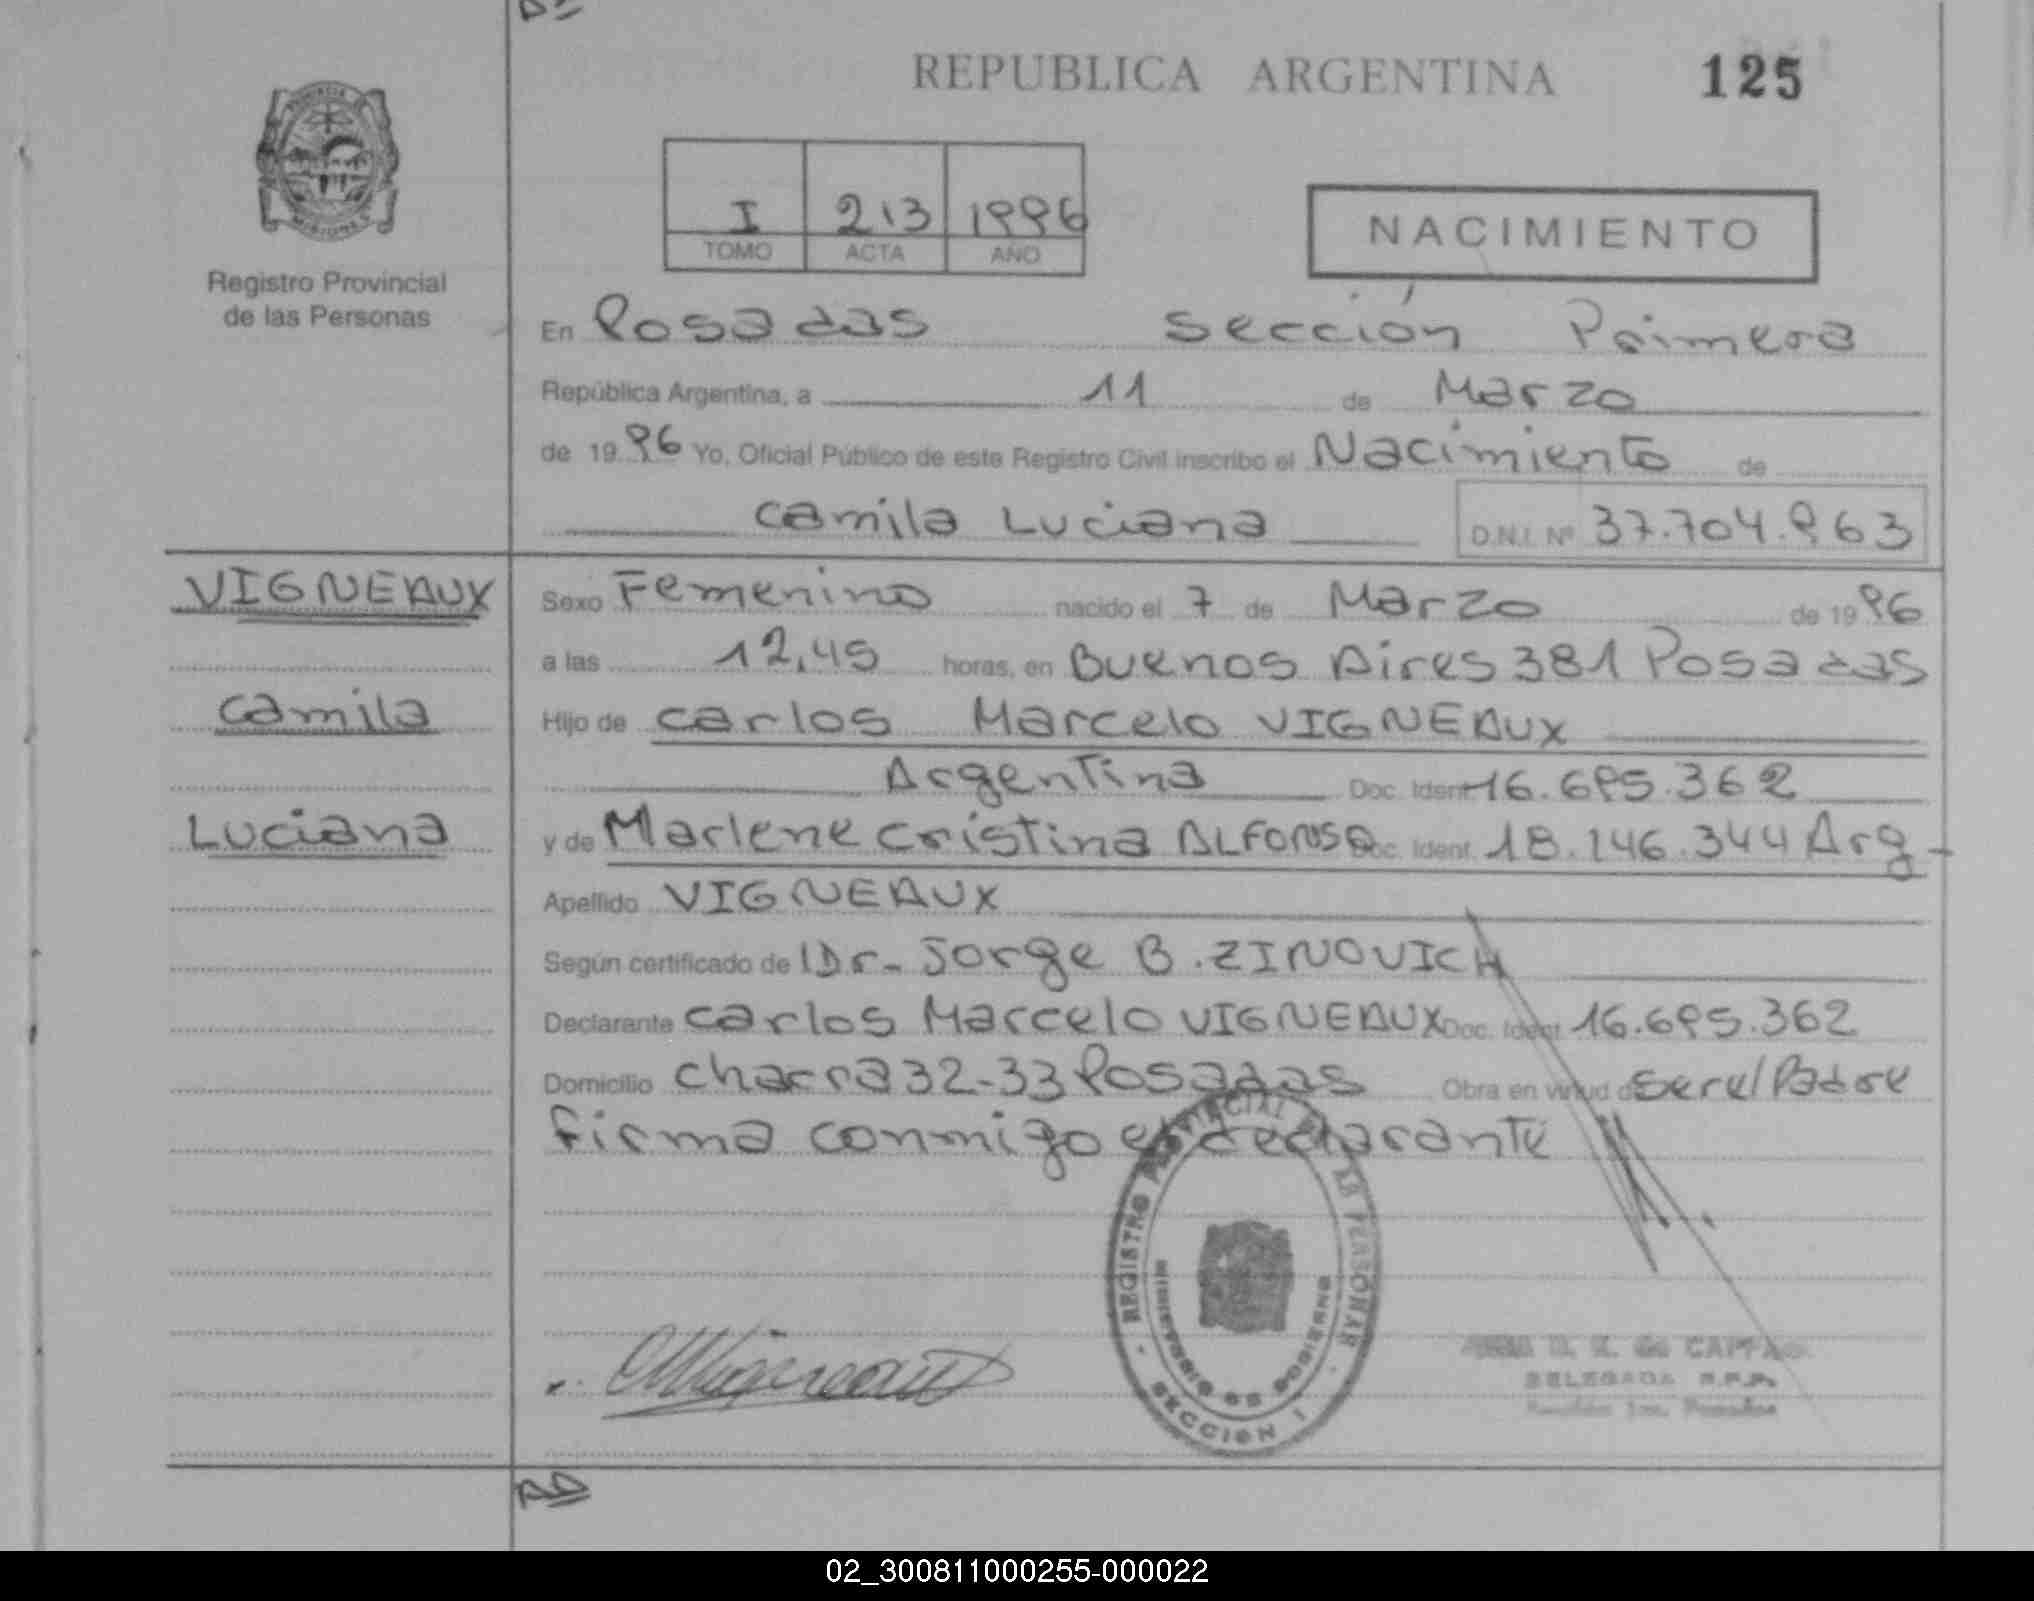 REPUBLICA ARGENTINA 125
I 213 1996
TOMO ACTA AÑO
NACIMIENTO
Registro Provincial
de las Personas
En Posadas Sección Primera
República Argentina, a 11 de Marzo
de 1996 Yo, Oficial Público de este Registro Civil inscribo el Nacimiento de
Camila Luciana D.N.I. Nº 37.704.963
VIGNEAUX
Camila
Luciana
Sexo Femenino nacido el 7 de Marzo de 1996
a las 12,45 horas, en Buenos Aires 381 Posadas
Hijo de Carlos Marcelo VIGNEAUX
Argentina Doc. Ident. 16.695.362
y de Marlene Cristina ALFONSO Doc. Ident. 18.146.344 Arg-
Apellido VIGNEAUX
Según certificado de Dr. Jorge B. ZINOVICH
Declarante Carlos Marcelo VIGNEAUX Doc. Ident 16.695.362
Domicilio Chacra 32-33 Posadas Obra en virtud de Ser el Padre
Firma conmigo el declarante
REGISTRO PROVINCIAL DE LAS PERSONAS
MINISTERIO DE GOBIERNO
SECCION I
DELEGADA R.P.P.
02_300811000255-000022